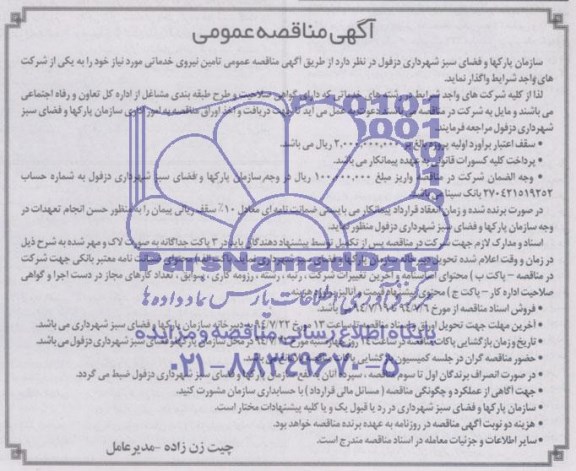 آگهی مناقصه عمومی
سازمان پارکها و فضای سبز شهرداری دزفول در نظر دارد از طریق آگهی مناقصه عمومی تامین نیروی خدماتی مورد نیاز خود را به یکی از شرکت
های واجد شرایط واگذار نماید.
لذا از کلیه شرکت های واجد شرایط در رشته های خدماتی که دارای گواهی صلاحیت و طرح طبقه بندی مشاغل از اداره کل تعاون و رفاه اجتماعی
می باشند و مایل به شرکت در مناقصه می باشند دعوت به عمل می آید تا جهت دریافت و اخذ اوراق مناقصه به امور اداری سازمان پارکها و فضای سبز
شهرداری دزفول مراجعه فرمایند.
• سقف اعتبار برآورد اولیه پروژه بالغ بر ۲,۰۰۰,۰۰۰,۰۰۰ ریال می باشد.
• پرداخت کلیه کسورات قانونی به عهده پیمانکار می باشد.
• وجه الضمان شرکت در مناقصه واریز مبلغ ۱۰۰,۰۰۰,۰۰۰ ریال در وجه سازمان پارکها و فضای سبز شهرداری دزفول به شماره حساب
۲۷۰۴۲۱۵۱۹۲۵۲ بانک سینا می باشد.
در صورت برنده شده و زمان انعقاد قرارداد پیمانکار می بایستی ضمانت نامه ای معادل ۱۰٪ سقف ریالی پیمان را به منظور حسن انجام تعهدات در
وجه سازمان پارکها و فضای سبز شهرداری دزفول منظور نماید.
اسناد و مدارک لازم جهت شرکت در مناقصه پس از تکمیل توسط پیشنهاد دهندگان باید در ۳ پاکت جداگانه به صورت لاک و مهر شده به شرح ذیل
در زمان و وقت اعلام شده تحویل سازمان پارکها و فضای سبز شهرداری ضمانت نامه معتبر بانکی جهت شرکت
در مناقصه – پاکت ب ) محتوای اساسنامه و آخرین تغییرات شرکت، رتبه، رشته، رزومه کاری، سوابق، تعداد کارهای مجاز در دست اجرا و گواهی
صلاحیت اداره کار – پاکت ج ) محتوی پیشنهاد قیمت و آنالیز
• فروش اسناد مناقصه از مورخ
• آخرین مهلت جهت تحویل اوراق و اسناد مناقصه تا ساعت ۱۳ مورخ ۹۴/۷/۲۲ دبیرخانه سازمان پارکها و فضای سبز شهرداری می باشد.
• تاریخ و زمان بازگشایی پاکات مناقصه در ساعت روز چهارشنبه مورخ در محل سازمان پارکها و فضای سبز شهرداری دزفول می باشد.
• حضور مناقصه گران در جلسه کمیسیون بازگشایی پاکات
• در صورت انصراف برندگان اول تا سوم مناقصه، سپرده آنان به نفع سازمان پارکها و فضای سبز شهرداری دزفول ضبط می گردد.
• جهت آگاهی از عملکرد و چگونگی مناقصه ( مسائل مالی قرارداد ) با حسابداری سازمان مشورت کنید.
• سازمان پارکها و فضای سبز شهرداری در رد یا قبول یک و یا کلیه پیشنهادات مختار است.
• هزینه دو نوبت آگهی مناقصه در روزنامه به عهده برنده مناقصه خواهد بود.
• سایر اطلاعات و جزئیات معامله در اسناد مناقصه مندرج است.
چیت زن زاده -مدیرعامل
ParsNamadData
مرکز فرآوری اطلاعات پارس نماد داده ها
پایگاه اطلاع رسانی مناقصه و مزایده
۰۲۱-۸۸۳۴۹۶۷۰-۵